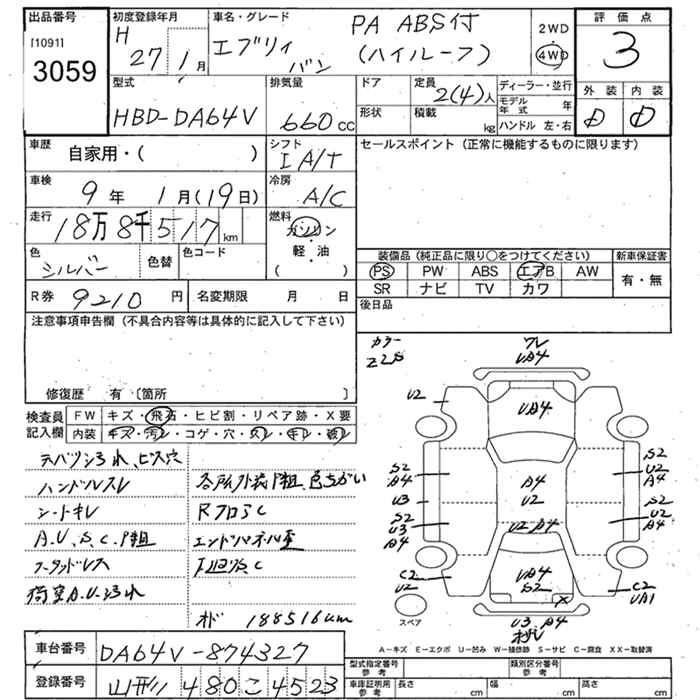 出品番号
[1091]
3059
初度登録年月
H 27年 1月
車名・グレード
エブリィ バン
PA ABS付
(ハイルーフ)
2WD
4WD
評価点
3
外装 内装
D D
型式
HBD-DA64V
排気量
660cc
ドア
形状
定員
2(4)人
積載
kg
ディーラー・並行
モデル年式 年
ハンドル 左・右
車歴
自家用・( )
シフト
IA/T
セールスポイント (正常に機能するものに限ります)
車検
9年 1月(19日)
冷房
A/C
走行
18万8千517km
燃料
ガソリン
軽・油
( )
色
シルバー
色替
色コード
装備品 (純正品に限り○をつけてください)
新車保証書
PS PW ABS エアB AW
SR ナビ TV カワ
有・無
R券 9210円
名変期限 月 日
後日品
注意事項申告欄 (不具合内容等は具体的に記入して下さい)
修復歴 有 〔箇所 〕
検査員記入欄
FW キズ・飛石・ヒビ割・リペア跡・X要
内装 キズ・汚レ・コゲ・穴・スレ・キレ・破レ
カラー
Z2S
ワレ
UA4
U2
UA4
S2
A4
A4
U2
S2
U2
A4
U3
S2
U3
A4
U2 A4
S2
U2
A4
C2
U2
UA4
S2
X
C2
UA1
U3 A4
スペア
ダッシュ汚れ、ビス穴
ハンドルスレ
シートキレ
A.U、S.C.P組
荷室A.U.汚れ
各所外装P組、色ちがい
RフロアC
エンドパネル歪
下廻S.C
オド 188516km
A−キズ E−エクボ U−凹み W−補修跡 S−サビ C−腐食 XX−取替済
車台番号
DA64V-874327
登録番号
山形 480 こ 4523
型式指定番号
参考
類別区分番号
参考
車庫証明用
参考
長さ cm
幅 cm
高さ cm